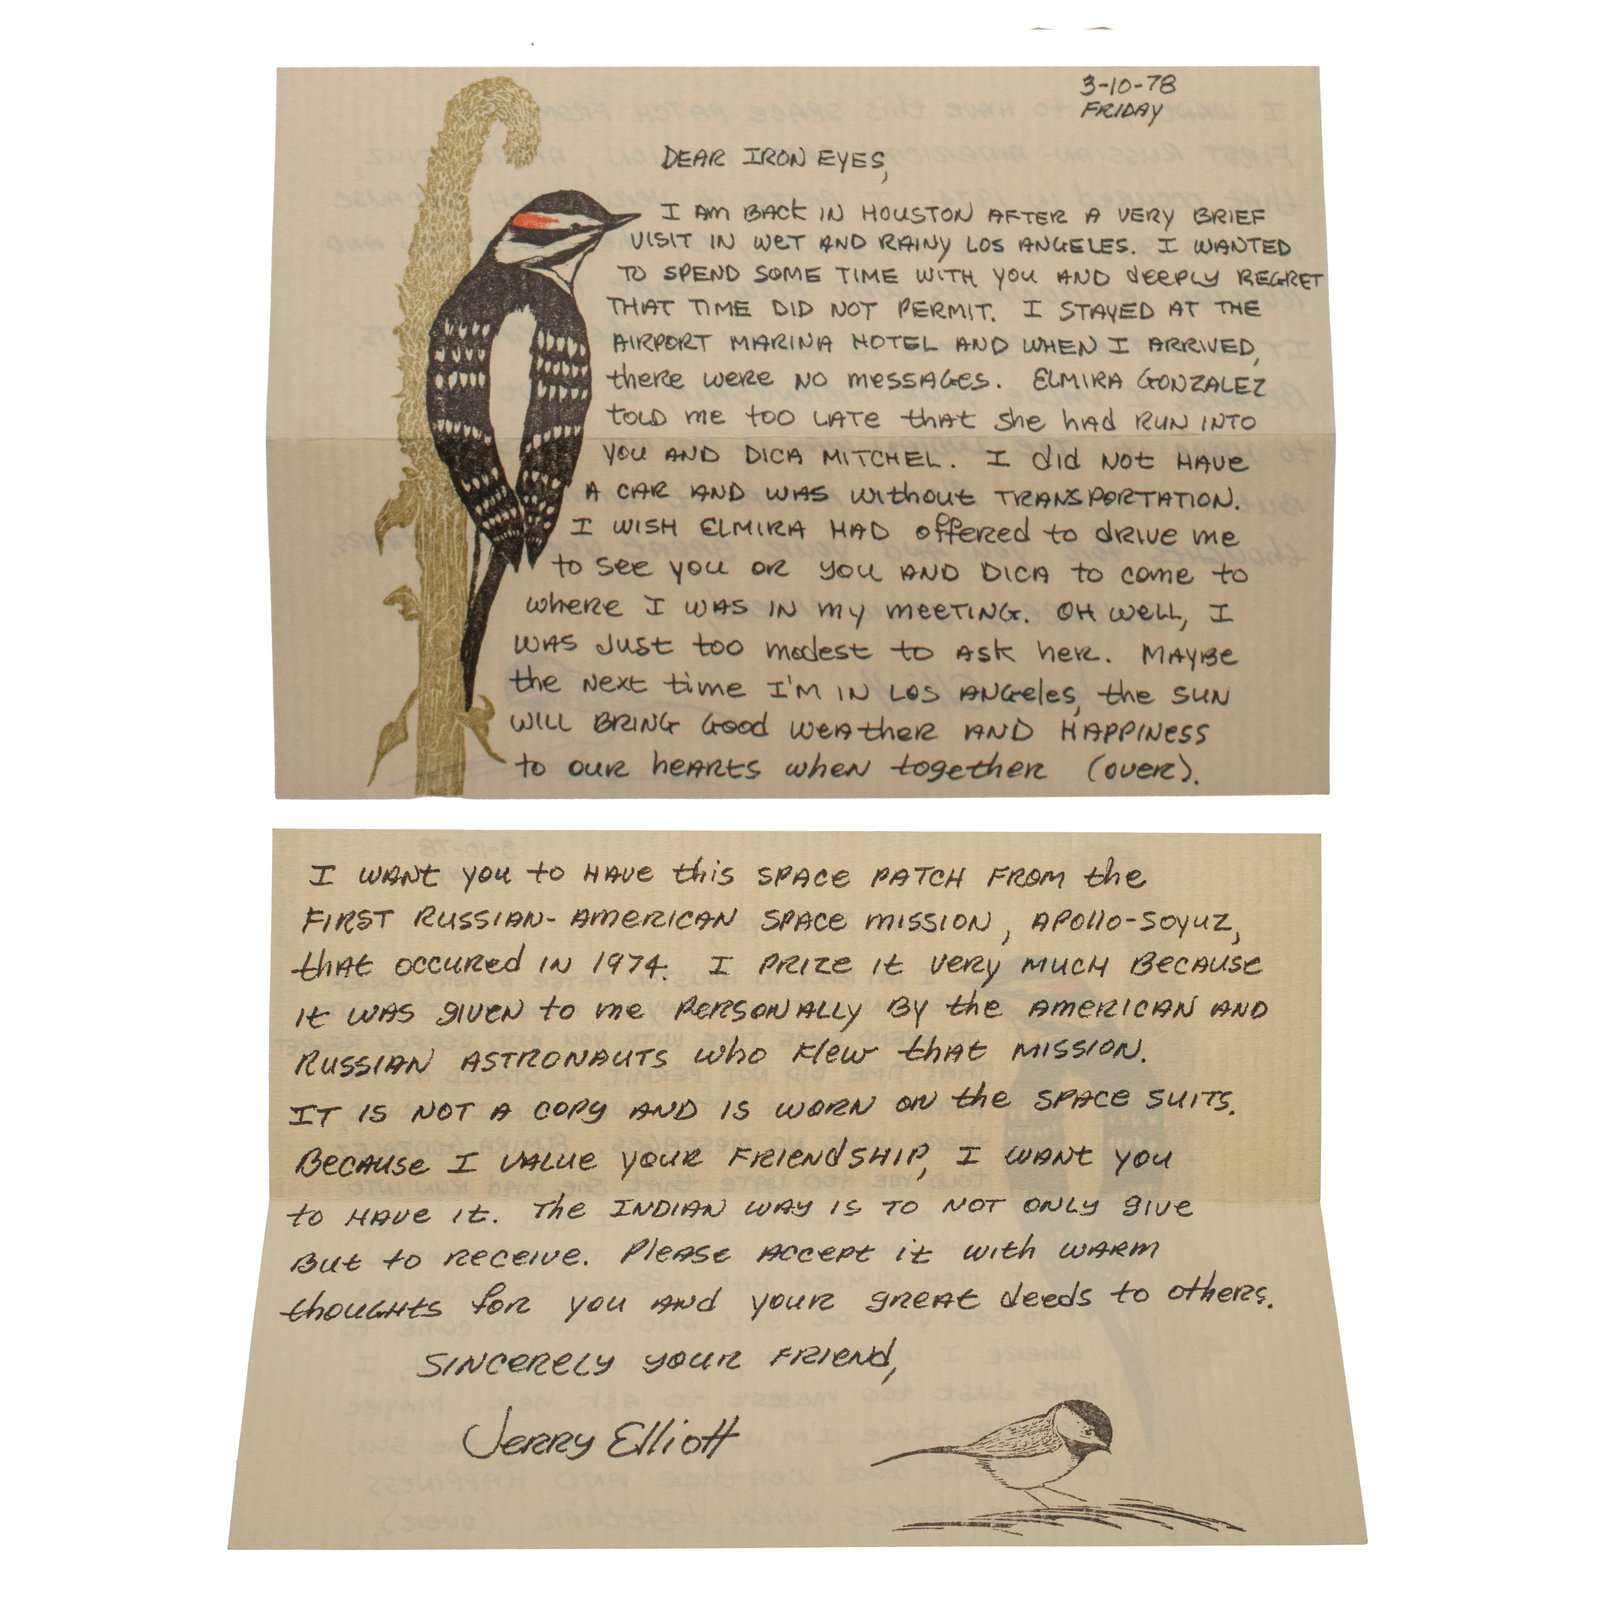 3-10-78
FRIDAY
DEAR IRON EYES,
I AM BACK IN HOUSTON AFTER A VERY BRIEF
VISIT IN WET AND RAINY LOS ANGELES. I WANTED
TO SPEND SOME TIME WITH YOU AND deePLY REGRET
THAT TIME DID NOT PERMIT. I STAYED AT THE
AIRPORT MARINA HOTEL AND WHEN I ARRIVED,
there were NO messAGes. ELMIRA GONZALEZ
toLD me too LATE that she had RUN INTO
YOU AND DICA MITCHEL. I did NOt HAVE
A CAR AND WAS without TRANSPORTATION.
I WISH ELMIRA HAD offered to drive me
to see you or you AND DICA to come to
where I WAS IN my meeTING. OH WeLL, I
WAS Just too modest to ASK her. MAYBe
the Next time I'M IN LOS ANGeles, the SUN
WILL BRING Good WeAther AND HAPPINess
to our heARTS when together (over).
I WANt you to HAVe this SPACe PATCH FROM the
FIRST RUSSIAN-AMERICAN SPACE MISSION, APOllo-SoyuZ,
thAt occured IN 1974. I PRIZe it very MUCH Because
it WAS gIVeN to me PeRSONALLY BY the AMERICAN AND
RUSSIAN ASTRONAUTS who flew that MISSION.
IT IS NOT A COPY AND IS WORN ON the SPACE SUITS.
BeCAUSe I VALUe YOUR FRIENdSHIP, I WANT YOU
to HAVe it. The INDIAN WAY IS TO NOT ONLY gIVe
But to ReceIVe. PleASe Accept it with WARM
thoughts for you ANd your great deeds to others.
SINCERELY YOUR FRIENd,
Jerry Elliott